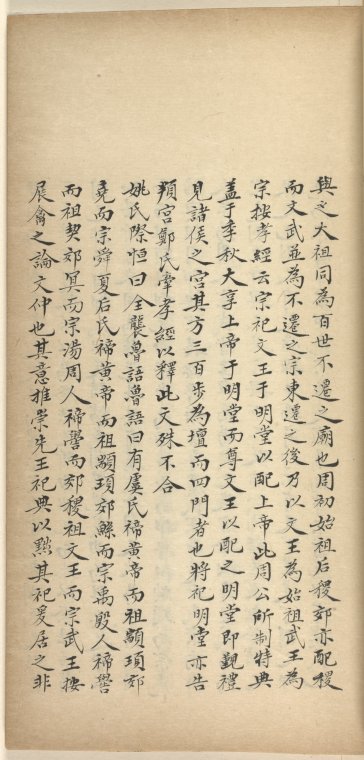 與之大祖同為百世不遷之廟也周初始祖后稷郊亦配稷
而文武並為不遷之宗東遷之後乃以文王為始祖武王為
宗按孝經云宗祀文王于明堂以配上帝此周公所制特典
盖于季秋大享上帝于明堂而尊文王以配之明堂即觀禮
見諸侯之宫其方三百步為壇而四門者也將祀明堂亦告
頖宮鄭氏牽孝經以釋此文殊不合
姚氏際恒曰全襲魯語魯語曰有虞氏禘黃帝而祖顓頊郊
堯而宗舜夏后氏禘黃帝而祖顓頊郊鯀而宗禹殷人禘嚳
而祖契郊冥而宗湯周人禘嚳而郊稷祖文王而宗武王按
展禽之論文仲也其意推崇先王祀典以黜其祀爰居之非